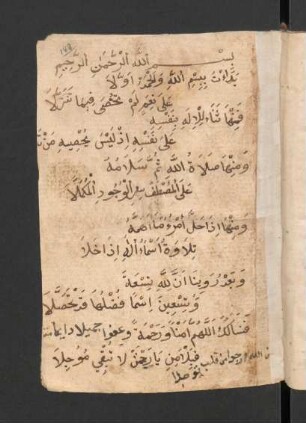 بسم الله الرحمن الرحيم
بدأت ببسم الله والحمد اولا
على نعم لم تحصى فيها تنزلا
فمنها ثناء للاله بنفسه
على نفسه اذ ليس يحصيه من
ومنها صلاة الله ثم سلامه
على المصطفى سر الوجود المكملا
ومنها اذا حل امرء ما اهمه
تلاوة اسماء اله اذا خلا
وبعد روينا ان لله تسعة
وتسعين اسما فضلها قد تحصلا
فنسالك اللهم امنا ورحمة وعفوا جميلا دايما
يا رحمن لا تبقي موجلا